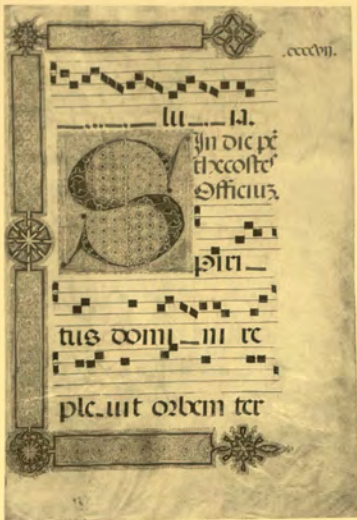 .cxxxvii.
lu ia.
In die pē
thecostes
Officiuʒ.
S
piri
tus domi ni re
ple uit orbem ter